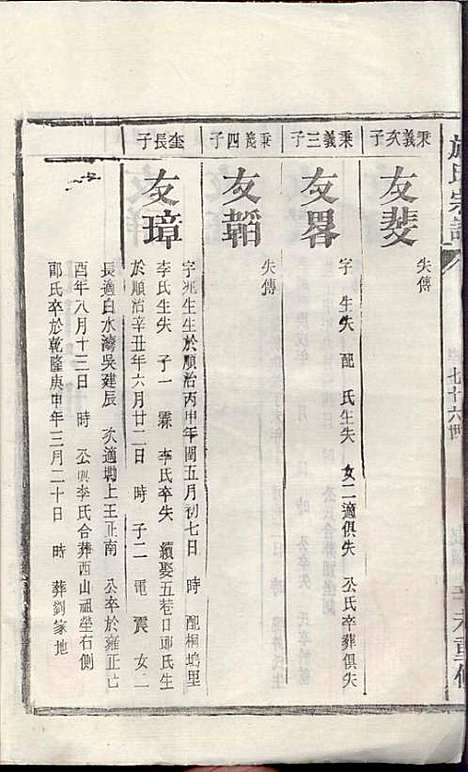 施氏宗譜
七十六世
秉義次子
友斐
失傳
秉義三子
友畧
字 生失 配 氏生失 女二適俱失 公氏卒葬俱失
秉義四子
友韜
失傳
奎長子
友璋
字 生生於順治丙申年閏五月初七日 時 配桐塢里
李氏生失 子一 霖 李氏卒失 續娶五巷日邱氏生
於順治辛丑年六月廿二日 時 子二 電 震 女二
長適白水灣吳建辰 次適 上王正南 公卒於雍正乙
酉年八月十三日 時 公與李氏合葬西山祖塋右側
邱氏卒於乾隆庚申年三月二十日 時 葬劉家地